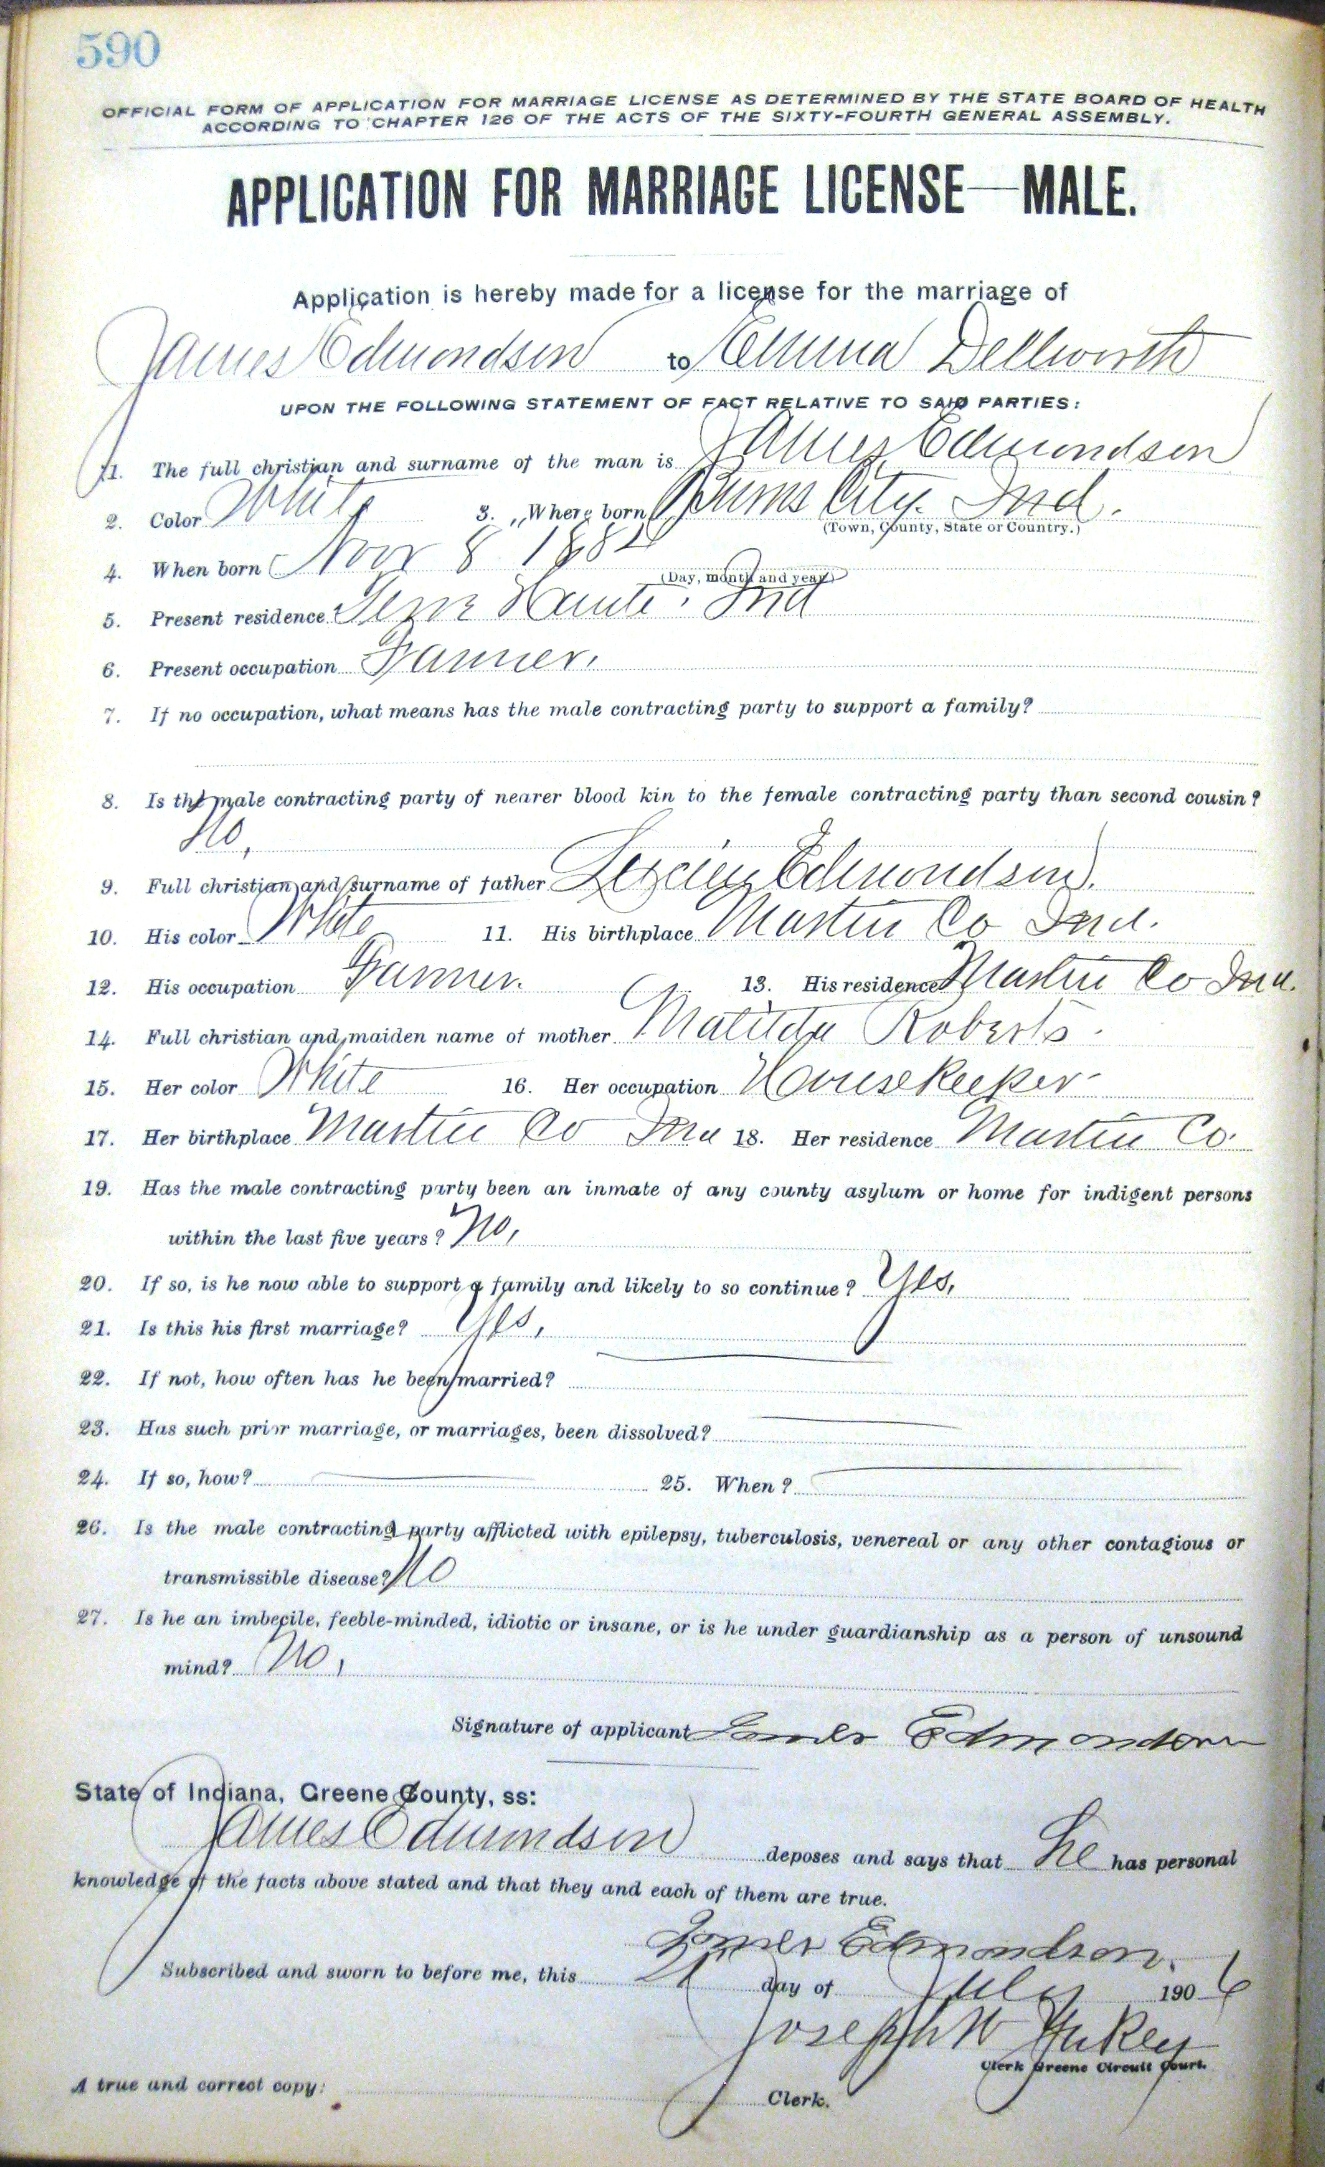 590
OFFICIAL FORM OF APPLICATION FOR MARRIAGE LICENSE AS DETERMINED BY THE STATE BOARD OF HEALTH
ACCORDING TO CHAPTER 126 OF THE ACTS OF THE SIXTY-FOURTH GENERAL ASSEMBLY.
APPLICATION FOR MARRIAGE LICENSE—MALE.
Application is hereby made for a license for the marriage of
James Edmondson to Emma Dellworth
UPON THE FOLLOWING STATEMENT OF FACT RELATIVE TO SAID PARTIES:
1. The full christian and surname of the man is James Edmondson
2. Color White 3. Where born Burns City. Ind.
(Town, County, State or Country.)
4. When born Nov 8 1882
(Day, month and year)
5. Present residence Terre Haute, Ind
6. Present occupation Farmer.
7. If no occupation, what means has the male contracting party to support a family?
8. Is the male contracting party of nearer blood kin to the female contracting party than second cousin?
No,
9. Full christian and surname of father Edmondson.
10. His color White 11. His birthplace Martin Co Ind.
12. His occupation Farmer. 13. His residence Martin Co Ind.
14. Full christian and maiden name of mother Matilda Roberts.
15. Her color White 16. Her occupation Housekeeper
17. Her birthplace Martin Co Ind 18. Her residence Martin Co.
19. Has the male contracting party been an inmate of any county asylum or home for indigent persons
within the last five years? No,
20. If so, is he now able to support a family and likely to so continue? Yes,
21. Is this his first marriage? Yes,
22. If not, how often has he been married?
23. Has such prior marriage, or marriages, been dissolved?
24. If so, how? 25. When?
26. Is the male contracting party afflicted with epilepsy, tuberculosis, venereal or any other contagious or
transmissible disease? No
27. Is he an imbecile, feeble-minded, idiotic or insane, or is he under guardianship as a person of unsound
mind? No,
Signature of applicant James Edmondson
State of Indiana, Greene County, ss:
James Edmondson deposes and says that he has personal
knowledge of the facts above stated and that they and each of them are true.
James Edmondson.
Subscribed and sworn to before me, this 21 day of July 1906
Joseph W Yakey
Clerk Greene Circuit Court.
A true and correct copy: Clerk.